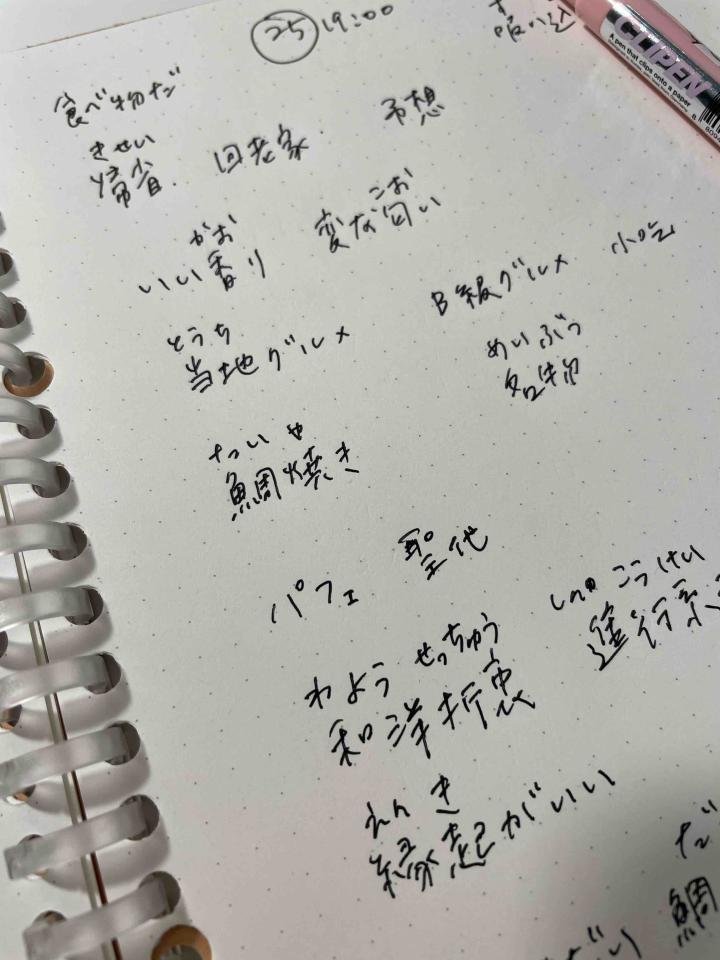 25 19:00
CLIPEN
A pen that clips onto a paper
食べ物だ
きせい
帰省 回老家 予想
かお にお
いい香り 変な匂い
B級グルメ 小吃
とうち
当地グルメ
めいぶつ
名物
たいや
鯛焼き
パフェ 聖代
わよう せっちゅう しんこうけい
和洋折衷 進行系
えんき
縁起がいい
だ
鯛